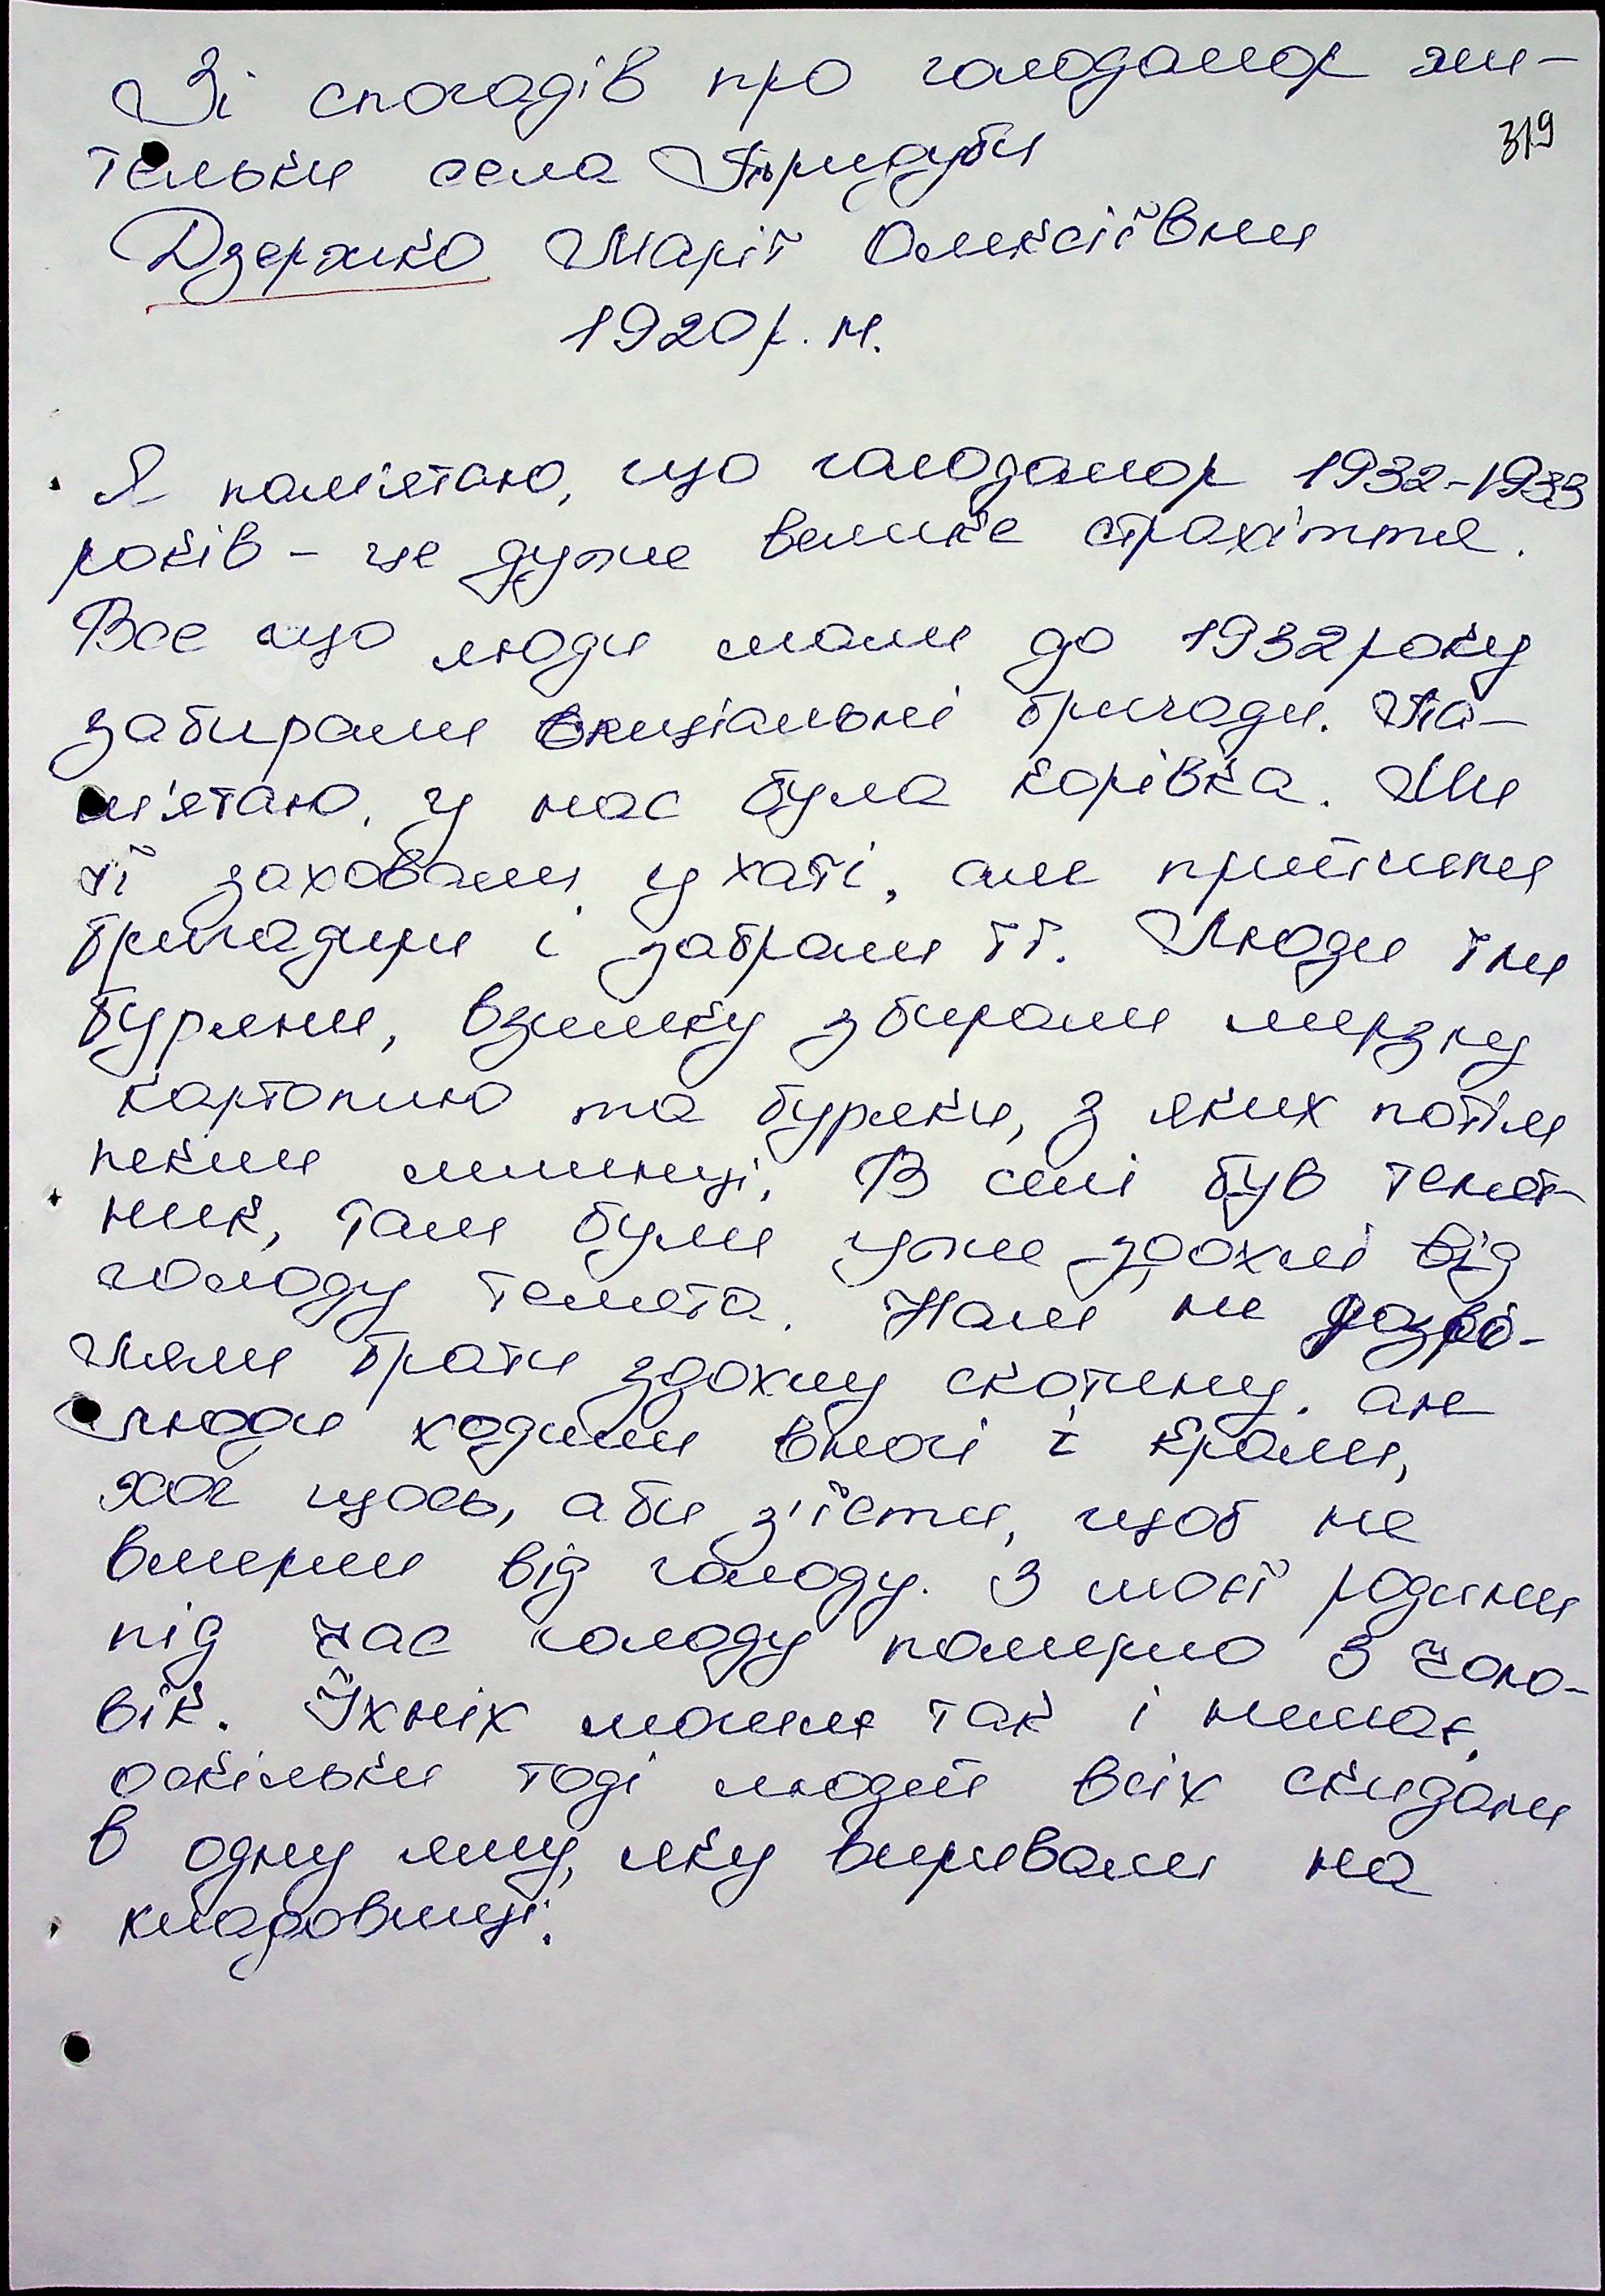 Зі спогадів про голодомор жи-
319
тельки села Придуби
Дзержко Марії Олексіївни
1920 р. н.
Я пам'ятаю, що голодомор 1932-1933
років - це дуже велике страхіття.
Все що люди мали до 1932 року
забирали спеціальні бригади. Па-
м'ятаю, у нас була корівка. Ми
її заховали у хаті, але прийшли
бригадири і забрали її. Люди їли
буряни, взимку збирали мерзлу
картоплю та буряки, з яких потім
пекли млинці. В селі був телят-
ник, там були уже здохлі від
голоду телята. Нам не дозво-
ляли брати здохлу скотину, але
люди ходили вночі і крали,
хоч щось, аби з'їсти, щоб не
вмерли від голоду. З моєї родини
під час голоду померло 3 чоло-
вік. Їхніх могил так і немає,
оскільки тоді людей всіх скидали
в одну яму, яку виривали на
кладовищі.